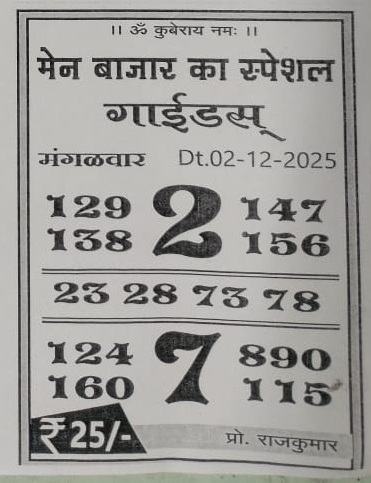 ।। ॐ कुबेराय नमः ।।
मेन बाजार का स्पेशल
गाईडस्
मंगळवार Dt.02-12-2025
129 2 147
138 156
23 28 73 78
124 7 890
160 115
₹25/- प्रो. राजकुमार